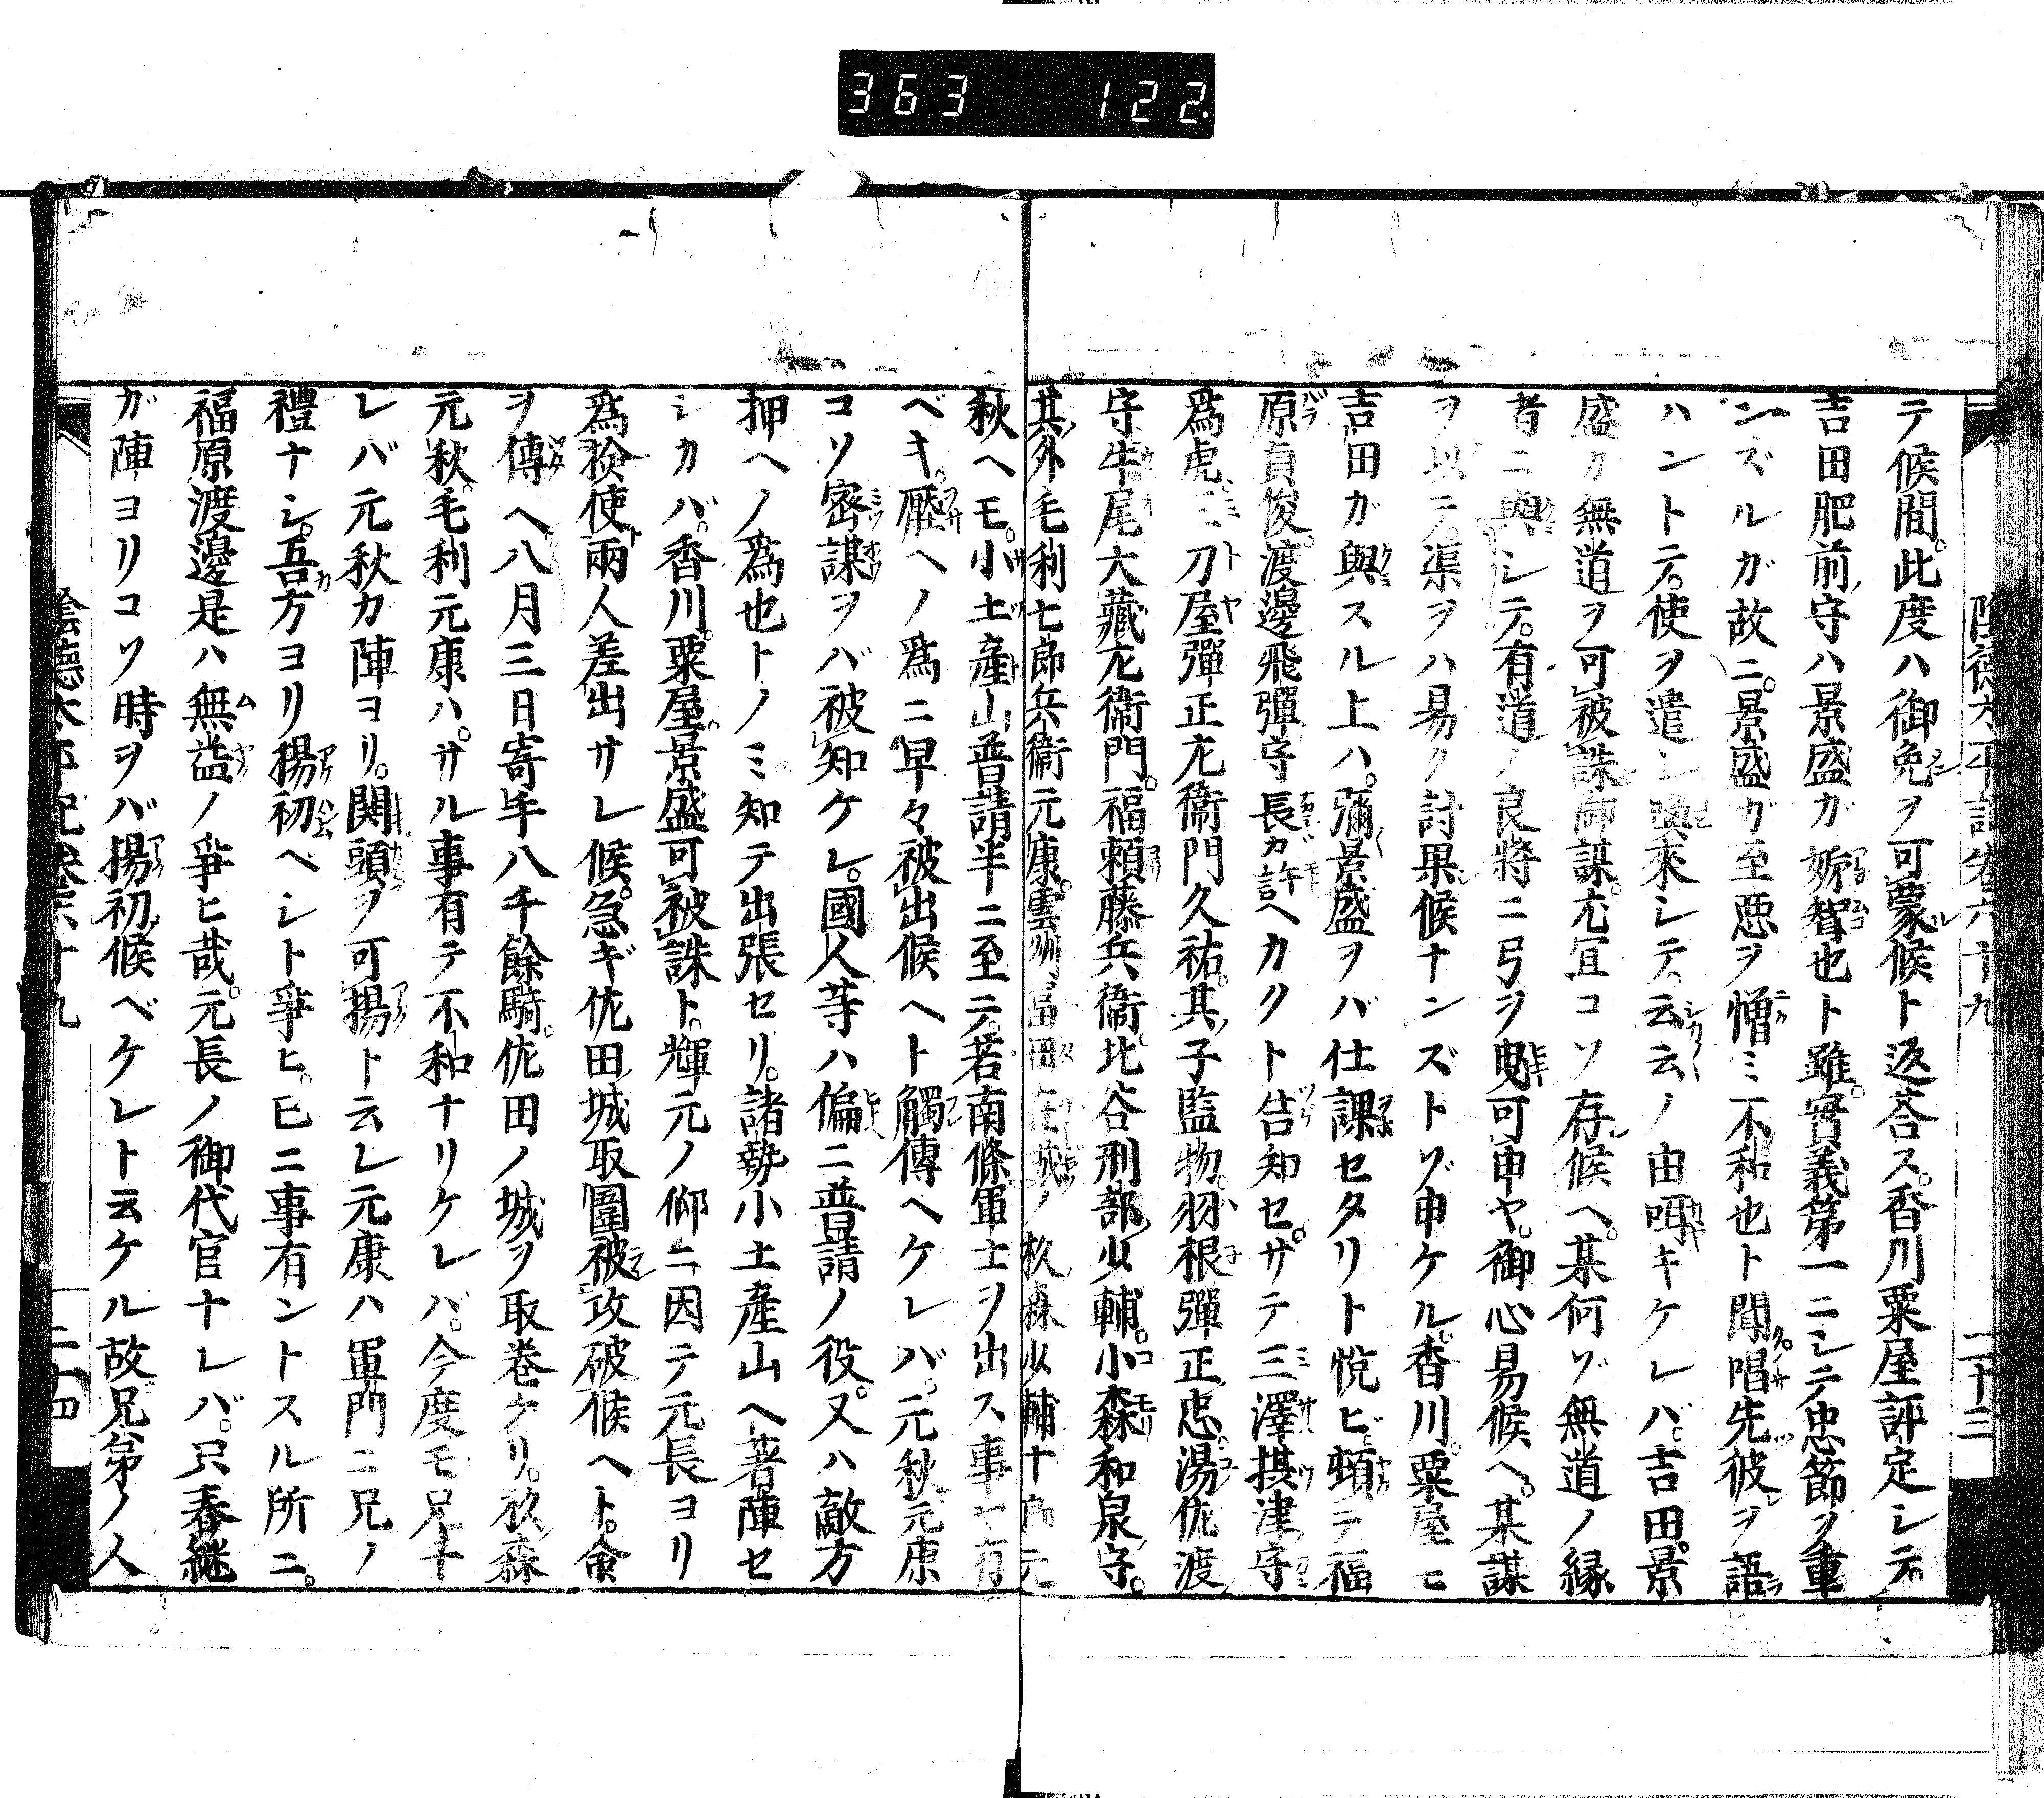 363 122
陰徳太平記卷六十九 二十三
テ候間。此度ハ御免ヲ可蒙候ト返荅ス。香川粟屋評定シテ。
吉田肥前守ハ景盛ガ姊聟也ト雖。實義第一ニシテ忠節ヲ重
ンズルガ故ニ。景盛ガ至悪ヲ憎ミ不和也ト聞。唱先彼ヲ語
ハントテ。使ヲ遣シ喚來シテ。云云ノ由囁キケレバ。吉田。景
盛カ無道ヲ可被誅御謀。尤宜コソ存候ヘ。某何ゾ無道ノ縁
者ニ與シテ。有道ノ良將ニ弓ヲ曳可申ヤ。御心易候ヘ。某謀
ヲ以テ。渠ヲハ易ク討果候ナンズトゾ申ケル。香川。粟屋モ
吉田ガ與スル上ハ。彌景盛ヲバ仕課セタリト悦ビ。頓テ福
原貞俊。渡邊飛彈守長ガ許ヘカクト告知セ。サテ三澤摂津守
爲虎。三刀屋彈正尤衞門久祐。其子監物。羽根彈正忠。湯佐渡
守。牛尾大藏尤衞門。福頼藤兵衞。比谷刑部少輔。小森和泉守。
其外毛利七郎兵衞元康。雲州冨田ノ城ノ杦森少輔十郎元
秋ヘモ。小土産山普請半ニ至テ。若南條軍士ヲ出ス事ヤ有
ベキ。壓ヘノ爲ニ早々被出候ヘト觸傳ヘケレバ。元秋元康
コソ宻謀ヲバ被知ケレ。國人等ハ偏ニ普請ノ役。又ハ敵方
押ヘノ爲也トノミ知テ出張セリ。諸勢小土産山ヘ著陣セ
シカバ。香川。粟屋。景盛可被誅ト。輝元ノ仰ニ因テ元長ヨリ
爲撿使兩人差出サレ候。急ギ佐田城取圍被攻破候ヘト。命
ヲ傳ヘ八月三日寄手八千餘騎。佐田ノ城ヲ取巻ケリ。杦森
元秋。毛利元康ハ。サル事有テ不和ナリケレバ。今度モ兄ナ
レバ元秋カ陣ヨリ。関頭ヲ可揚ト云レ元康ハ軍門ニ兄ノ
禮ナシ。吾方ヨリ揚初ベシト爭ヒ。已ニ事有ントスル所ニ。
福原渡邊是ハ無益ノ爭ヒ哉。元長ノ御代官ナレバ。只春継
ガ陣ヨリコソ時ヲバ揚初候ベケレト云ケル故兄弟ノ人
陰徳太平記卷六十九 二十四